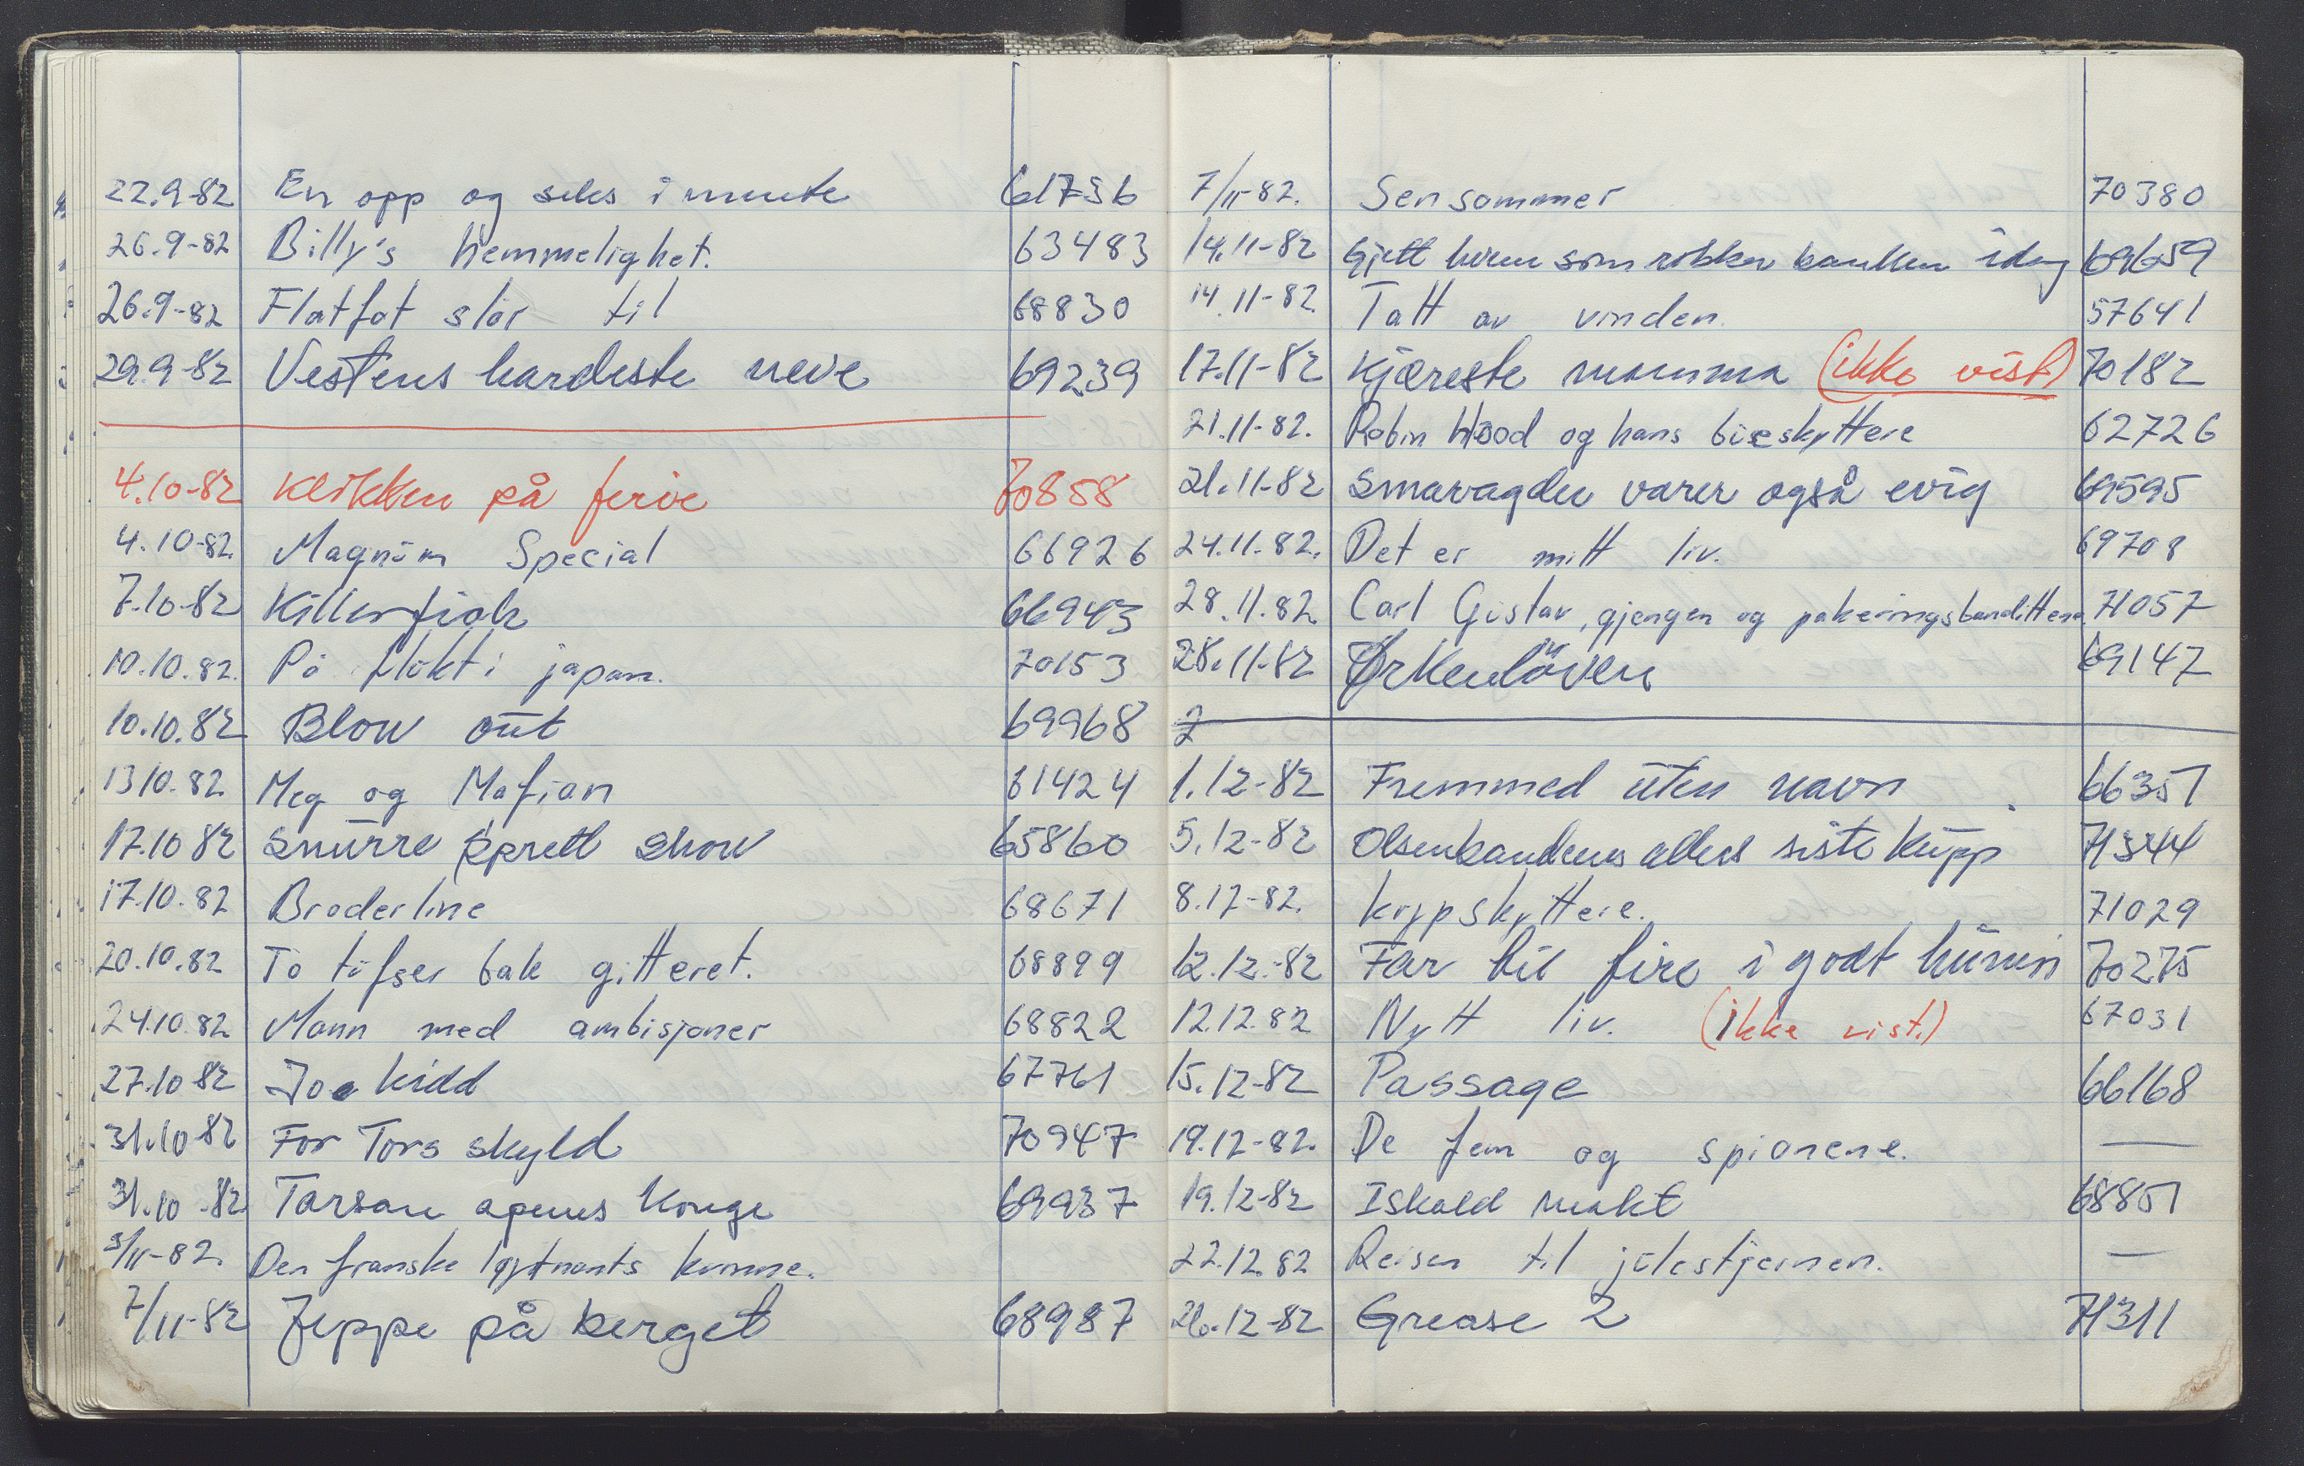 22.9-82 En opp og seks i mente 61736
26.9-82 Billy's hemmelighet. 63483
26.9-82 Flatfot slår til 68830
29.9-82 Vestens hardeste neve 69239
4.10-82 Klikken på ferie 70858
4.10-82 Magnum Special 66926
7.10-82 Killerfish 66943
10.10.82. På flukt i japan. 70153
10.10.82 Blow out 69968
13 10.82. Meg og Mafian 61424
17.10 82 Snurre sprett show 65860
17.10.82 Broderline 68671
20.10.82 To tufser bak gitteret. 68899
24.10.82 Mann med ambisjoner 68822
27.10 82 Joe Kidd 67761
31.10 82 For Tors skyld 70947
31.10 .82 Tarsan apenes konge 69937
3/11-82. Den franske løytnants kvinne.
7/11-82 Jeppe på berget 68987
7/11-82. Sensommer 70380
14.11-82 Gjett hvem som robber banken idag 69659
14.11-82. Tatt av vinden. 57641
17.11-82 Kjæreste mamma (ikke vist) 70182
21.11-82. Robin Hood og hans bueskyttere 62726
21.11-82 Smaragder varer også evig 69595
24.11.82. Det er mitt liv. 69708
28.11.82. Carl Gustav, gjengen og pakeringsbandittene. 71057
28.11-82 Ørkenløven 69147
2
1.12-82 Fremmed uten navn 66351
5.12-82 Olsenbandens aller siste kupp 71344
8.12-82. krypskyttere. 71029
12.12.-82 Far til fire i godt humør 70275
12.12.82 Nytt liv. (ikke vist.) 67031
15.12-82 Passage 66168
19.12-82. De fem og spionene. —
19.12-82 Iskald makt 68851
22.12.82 Reisen til julestjernen. —
26.12-82 Grease 2 71311